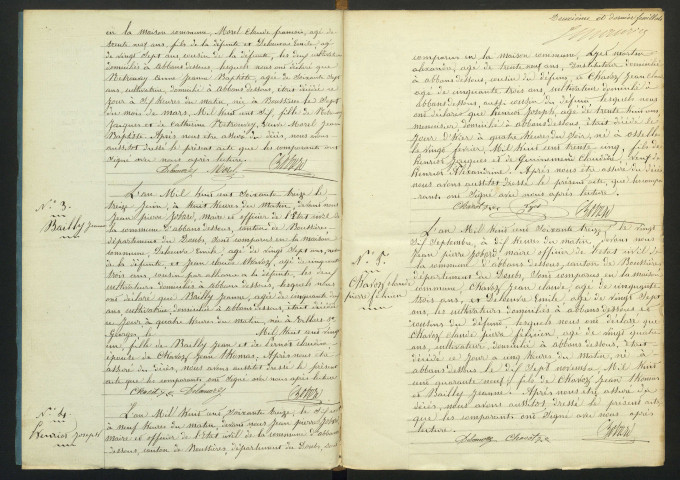 en la maison commune, Morel Claude François, agé de
trente neuf ans, fils de la défunte et Delavenne Emile, agé
de vingt sept ans, cousin de la défunte, les deux
domiciliés à abbans dessous, lesquels nous ont déclaré que
Jeanne Baptiste, agée de soixante sept
ans, cultivatrice, domiciliée à Abbans dessous, était décédée ce
jour à dix heures du matin, née à Boussières le sept
du mois de mars, Mil huit cent six, fille de
Jacques et de Catherine, veuve Morel Jean
Baptiste. Après nous être assuré du décès, nous avons
aussitôt dressé le présent acte que les comparants ont
signé avec nous après lecture.
Morel
N° 3.
Bailly Jeanne
L'an Mil huit cent soixante treize, le
vingt juin, à huit heures du matin, devant nous
Jean pierre Jobard, maire et officier de l'état civil de
la commune d'abbans dessous, canton de Boussières
département du Doubs, sont comparus en la maison
commune, Emile, agé de vingt sept ans, neveu
de la défunte, et Jean Claude Chavoz, agé de cinquante
trois ans, cousin par alliance à la défunte, les deux
cultivateurs domiciliés à abbans dessous, lesquels nous
ont déclaré que Bailly Jeanne, agée de cinquante deux
ans, cultivatrice, domiciliée à Abbans dessous, était décédée
ce jour, à quatre heures du matin, née à
Mil huit cent vingt
un, fille de Bailly Jean et de Claudine,
épouse de Chavoz Jean Thomas. Après nous être
assuré du décès, nous avons aussitôt dressé le présent
acte que les comparants ont signé avec nous après lecture
N° 4.
Henriot Joseph
L'an Mil huit cent soixante treize, le dix août
à neuf heures du matin, devant nous Jean pierre Jobard
maire et officier de l'état civil de la commune d'abbans
dessous, canton de Boussières, département du Doubs, sont
Deuxième et dernier feuillet
comparus en la maison commune,
alexandre, agé de trente neuf ans, Instituteur domicilié
à abbans dessous, voisin du défunt, et Chavoz Jean Claude
agé de cinquante trois ans, cultivateur domicilié à
abbans dessous, aussi voisin du défunt, lesquels nous
ont déclaré que henriot Joseph, agé de trente huit ans
menuisier domicilié à abbans dessous était décédé le
jour d'hier à quatre heures du soir, né à Osselle
le vingt février, Mil huit cent trente cinq, fils de
Henriot Jacques et de Claudine, veuf de
Après nous être assuré du décès
nous avons aussitôt dressé le présent acte, que les compa-
rants ont signé avec nous après lecture.
N° 5.
Chavoz Claude
pierre félicien
L'an Mil huit cent soixante treize, le vingt
Septembre, à dix heures du matin, devant nous
Jean pierre Jobard, maire officier de l'état civil de
la commune d'abbans dessous, canton de Boussières,
département du Doubs, sont comparus en la maison
commune, Chavoz Jean Claude, agé de cinquante
trois ans, et Emile agé de vingt sept
ans, les cultivateurs domiciliés à abbans dessous et
cousins du défunt, lesquels nous ont déclaré que
Chavoz Claude pierre félicien, agé de vingt quatre
ans, cultivateur, domicilié à abbans dessous, était
décédé ce jour à cinq heures du matin, né à
abbans dessous le dix sept novembre, Mil huit
cent quarante neuf, fils de Chavoz Jean Thomas
et Bailly Jeanne. Après nous être assuré du
décès, nous avons aussitôt dressé le présent acte
que les comparants ont signé avec nous après
lecture.